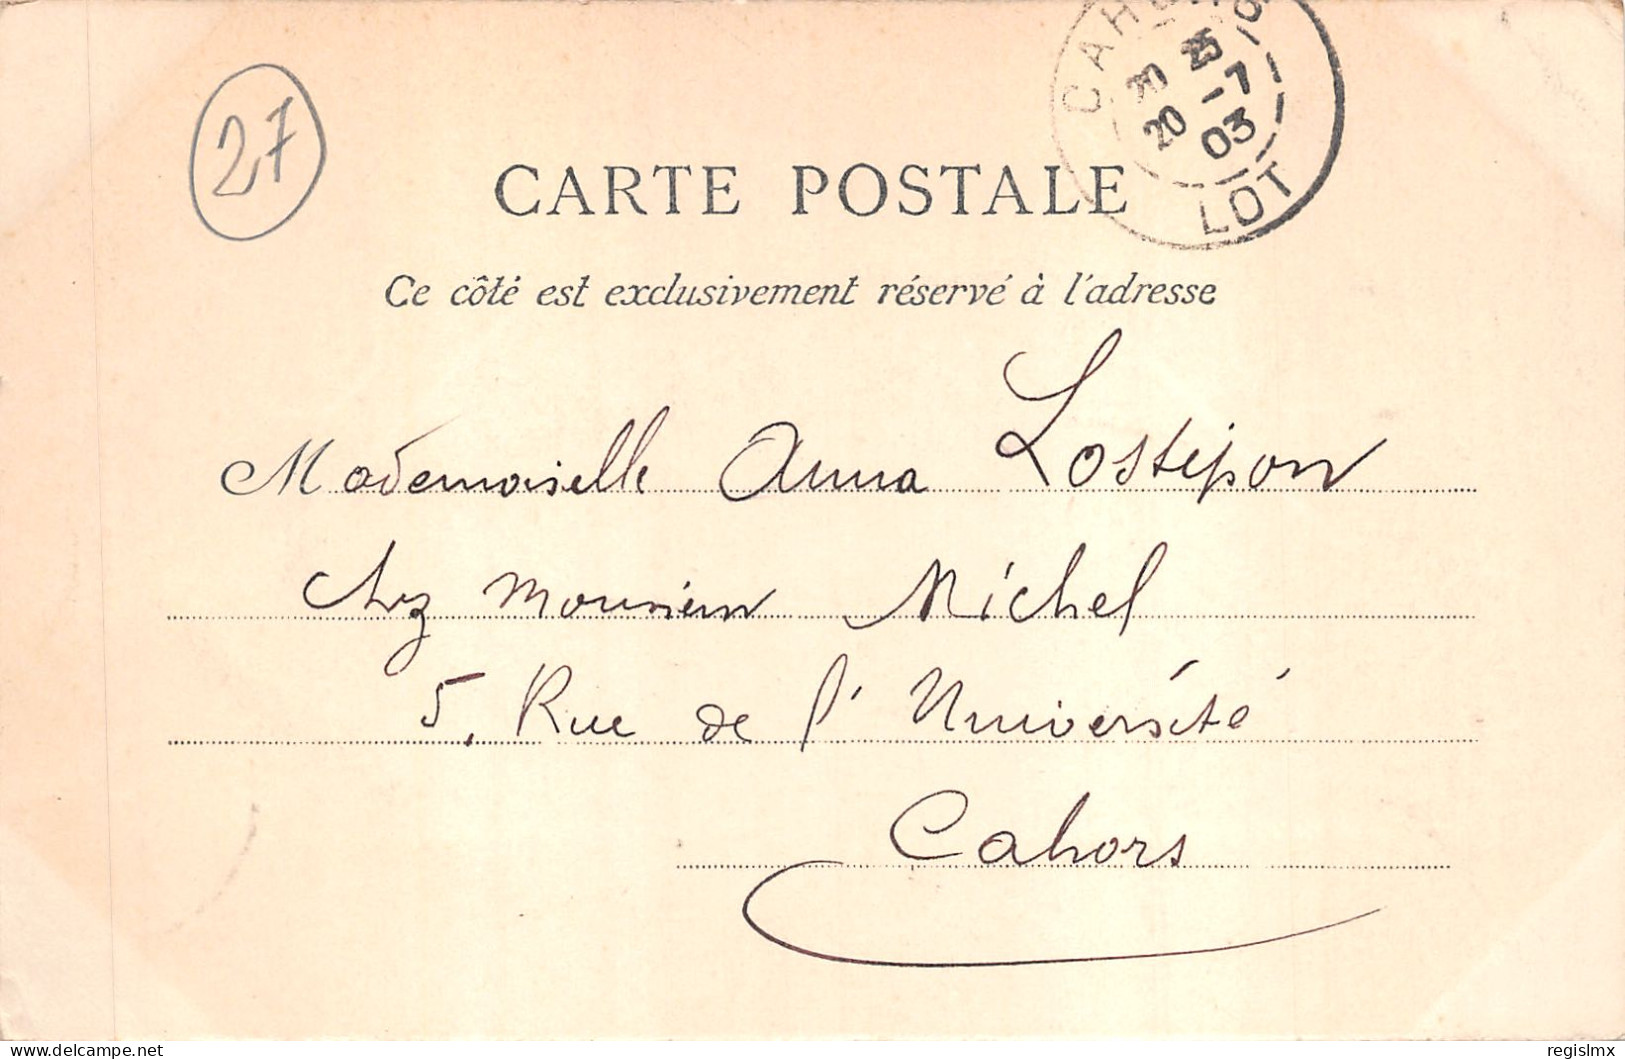 27
CAHORS
20 25
20 - 7
03
LOT
CARTE POSTALE
Ce côté est exclusivement réservé à l'adresse
Mademoiselle Anna Lostépon
chez monsieur Michel
5, Rue de l'Université
Cahors
© delcampe.net
regislmx